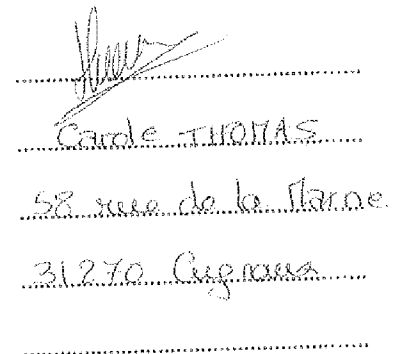 Carole THOMAS
58 rue de la Marne
31270 Cugnaux